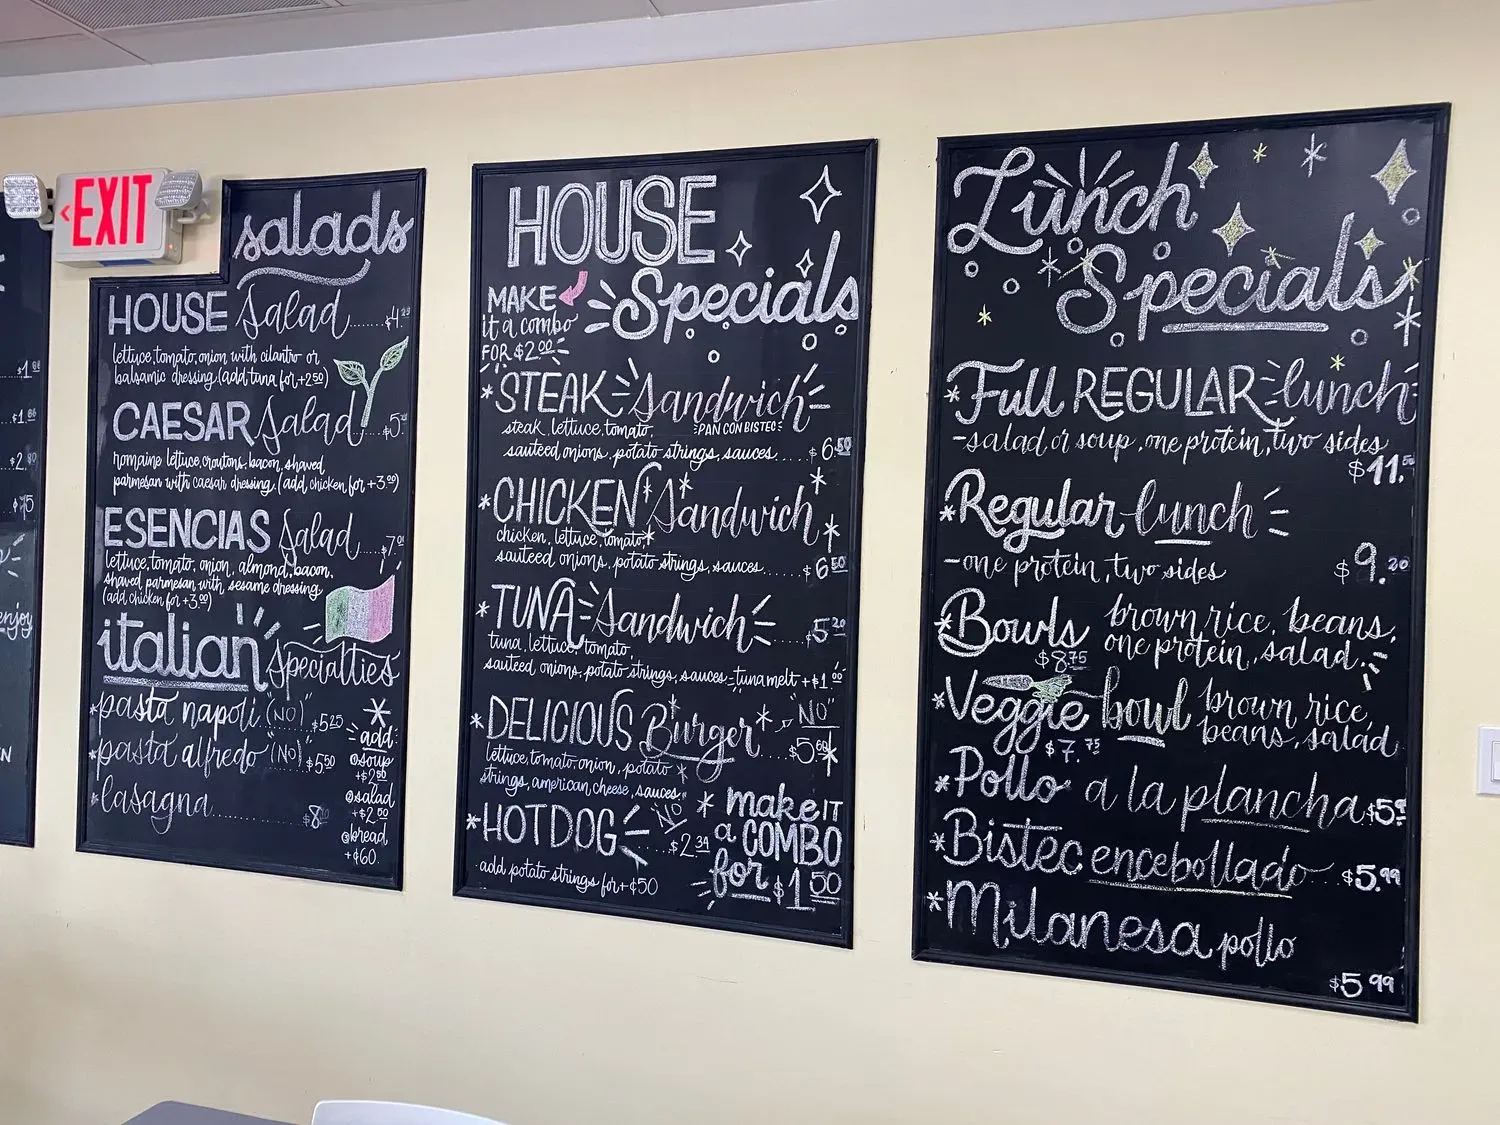 EXIT
$1.00
$1.
$2.
enjoy
salads
HOUSE Salad.......$4.
lettuce, tomato, onion with cilantro or
balsamic dressing (add tuna for +2.50)
CAESAR Salad....$5.
romaine lettuce, croutons, bacon, shaved
parmesan with caesar dressing. (add chicken for +3.00)
ESENCIAS Salad....$7.
lettuce, tomato, onion, almond, bacon,
shaved parmesan with sesame dressing
(add chicken for +3.00)
italian Specialties
*pasta napoli (NO) $5.25
*pasta alfredo "(NO)" $5.50
*lasagna................$8
*
add:
@soup
+$2.00
@salad
+$2.00
@bread
+¢60.
HOUSE
Specials
MAKE
it a combo
FOR $2.00
*STEAK Sandwich
steak, lettuce, tomato, PAN CON BISTEC
sauteed onions, potato strings, sauces.....$6.50
*CHICKEN Sandwich
chicken, lettuce, tomato
sauteed onions, potato strings, sauces.......$6.50
*TUNA Sandwich
.....$5.20
tuna, lettuce, tomato,
sauteed onions, potato strings, sauces - tuna melt +$1.00
*DELICIOUS Burger
"NO"
..$5.
lettuce, tomato, onion, potato
strings, american cheese, sauces.
*HOTDOG
NO
....$2.34
add potato strings for +¢50
* make IT
a COMBO
for $1.50
Lunch
Specials
*Full REGULAR lunch
-salad or soup, one protein, two sides
$11.
*Regular lunch
-one protein, two sides $9.20
*Bowls brown rice, beans,
one protein, salad.
$8.75
*Veggie bowl brown rice,
beans, salad
$7.75
*Pollo a la plancha $5.
*Bistec encebollado...$5.99
*Milanesa pollo
$5.99